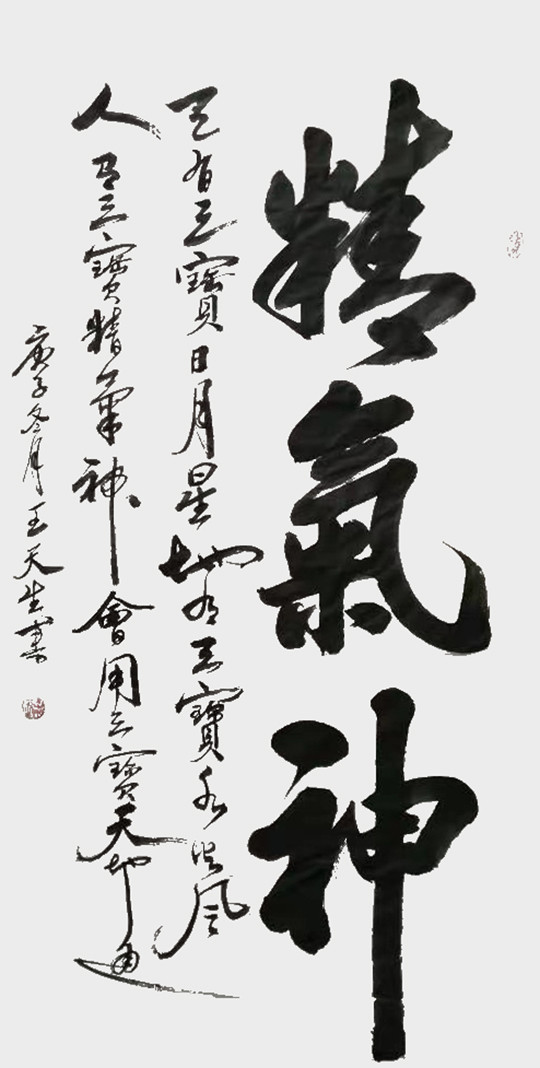 精氣神
天有三寳日月星地有三寳水火風
人有三寳精氣神會用三寳天地通
庚子冬月王天生書